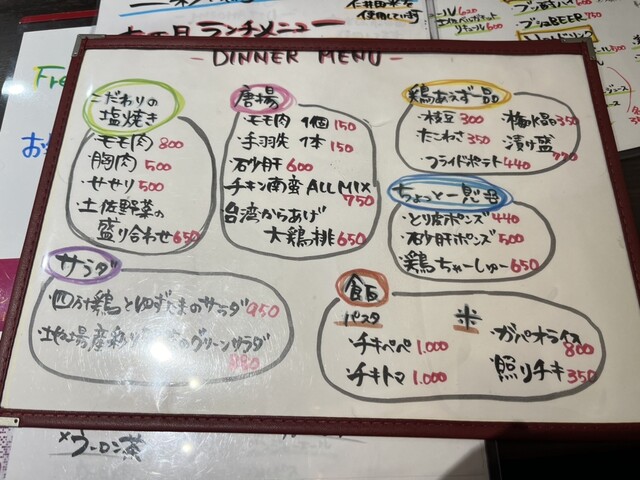 ランチメニュー
使用しています
リキュール 600
プレBEER 750
- DINNER MENU -
こだわりの
塩焼き
・モモ肉 800
・胸肉 500
・せせり 500
・土佐野菜の
盛り合わせ 650
唐揚
・モモ肉 1個 150
・手羽先 1本 150
・砂肝 600
・チキン南蛮 ALL MIX
750
・台湾からあげ
大鶏排 650
鶏あえず品
・枝豆 300
・たこわさ 350
・フライドポテト 440
・梅水晶 350
・漬け盛
770
ちょっと一息
・とり皮ポンズ 440
・砂肝ポンズ 500
・鶏ちゃーしゅー 650
サラダ
・四万十鶏とゆずたまのサラダ 950
のグリーンサラダ
880
飯
パスタ
・チキペペ 1.000
・チキトマ 1.000
米
・ガパオライス
800
・照りチキ 350
×ウーロン茶